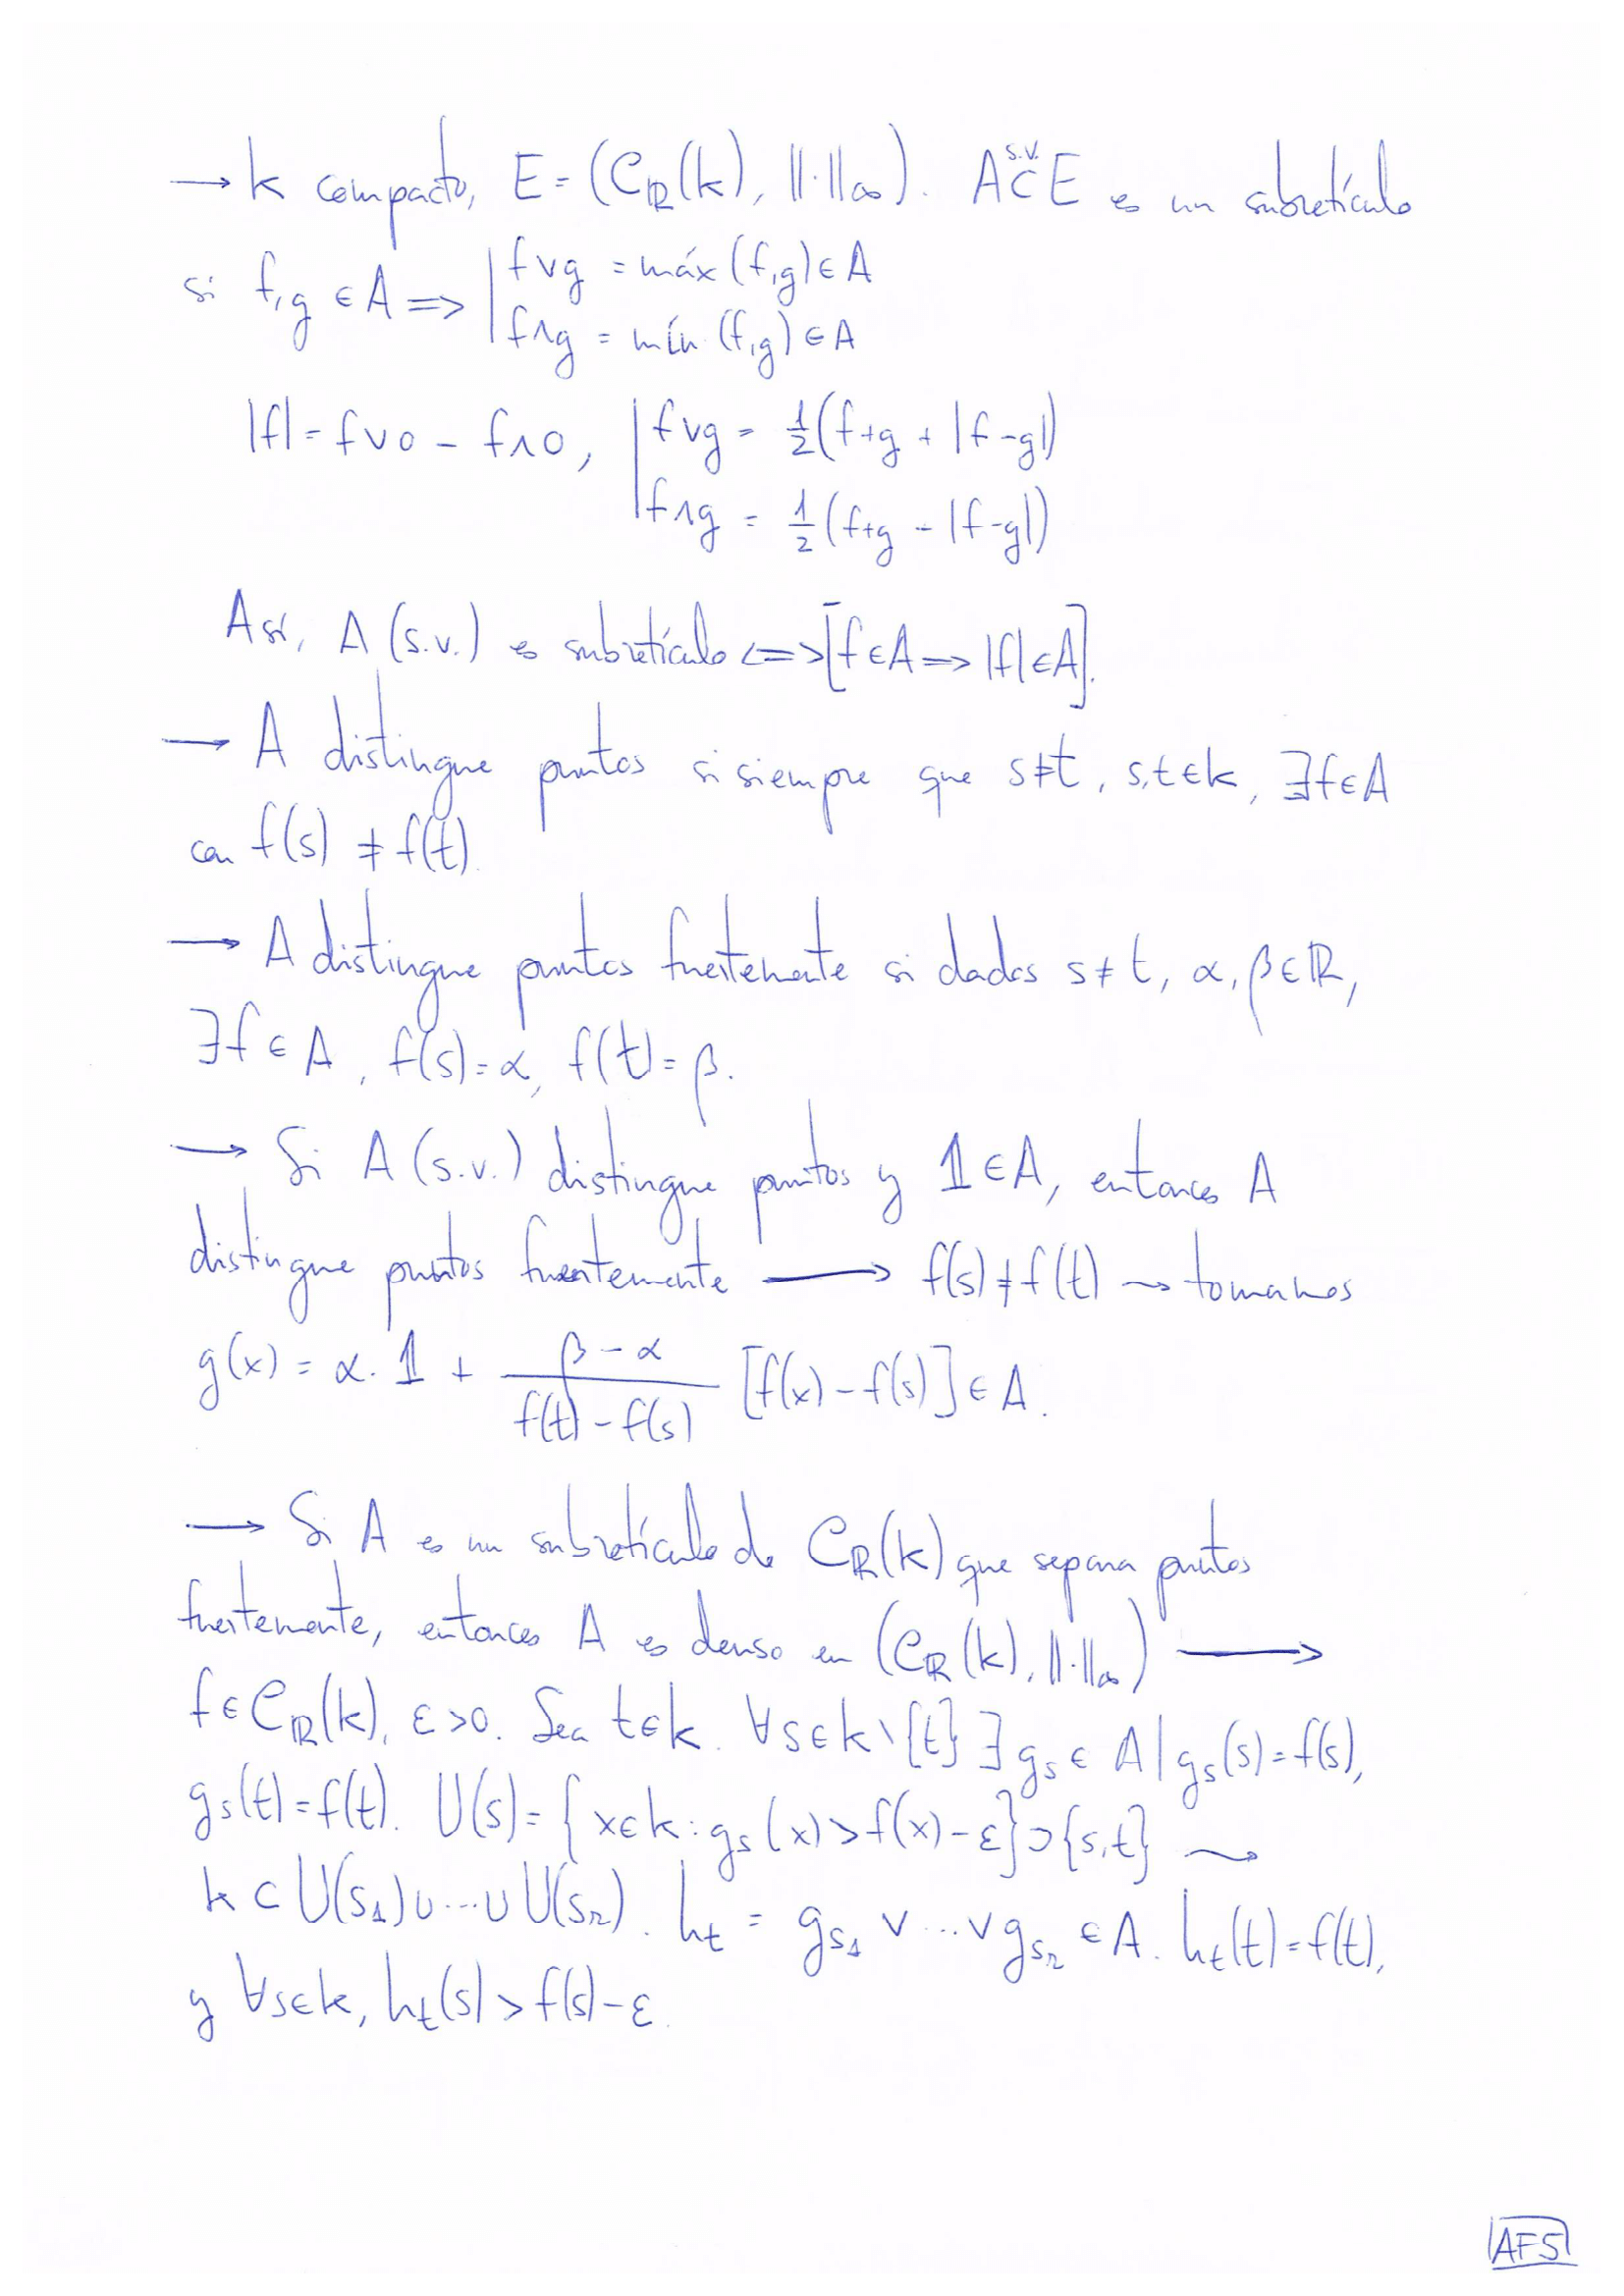 → K compacto, E = (C_ℝ(K), ‖·‖_∞). A ⊂^{s.v.} E es un subretículo
si f,g ∈ A ⟹ | f∨g = máx(f,g) ∈ A
f∧g = mín(f,g) ∈ A
|f| = f∨0 − f∧0, | f∨g = ½(f+g + |f−g|)
f∧g = ½(f+g − |f−g|)
Así, A (s.v.) es subretículo <=> [f ∈ A ⟹ |f| ∈ A].
→ A distingue puntos si siempre que s≠t, s,t ∈ K, ∃f ∈ A
con f(s) ≠ f(t).
→ A distingue puntos fuertemente si dados s≠t, α, β ∈ ℝ,
∃f ∈ A, f(s) = α, f(t) = β.
→ Si A (s.v.) distingue puntos y 𝟙 ∈ A, entonces A
distingue puntos fuertemente ⟶ f(s) ≠ f(t) ⇝ tomamos
g(x) = α·𝟙 + (β − α)/(f(t) − f(s)) [f(x) − f(s)] ∈ A.
→ Si A es un subretículo de C_ℝ(K) que separa puntos
fuertemente, entonces A es denso en (C_ℝ(K), ‖·‖_∞) ⟶
f ∈ C_ℝ(K), ε > 0. Sea t ∈ K. ∀s ∈ K∖{t} ∃ g_s ∈ A | g_s(s) = f(s),
g_s(t) = f(t). U(s) = {x ∈ K : g_s(x) > f(x) − ε} ⊃ {s,t} ⇝
K ⊂ U(s_1) ∪ ... ∪ U(s_r). h_t = g_{s_1} ∨ ... ∨ g_{s_r} ∈ A. h_t(t) = f(t),
y ∀s ∈ K, h_t(s) > f(s) − ε.
AF5